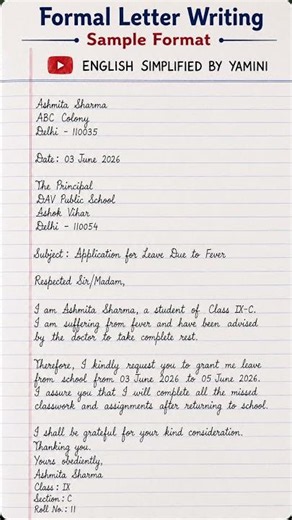 Formal Letter Writing
Sample Format
ENGLISH SIMPLIFIED BY YAMINI
Ashmita Sharma
ABC Colony
Delhi - 110035
Date: 03 June 2026
The Principal
DAV Public School
Ashok Vihar
Delhi - 110054
Subject: Application for Leave Due to Fever
Respected Sir/Madam,
I am Ashmita Sharma, a student of Class IX-C.
I am suffering from fever and have been advised
by the doctor to take complete rest.
Therefore, I kindly request you to grant me leave
from school from 03 June 2026 to 05 June 2026.
I assure you that I will complete all the missed
classwork and assignments after returning to school.
I shall be grateful for your kind consideration.
Thanking you.
Yours obediently,
Ashmita Sharma
Class: IX
Section: C
Roll No.: 11